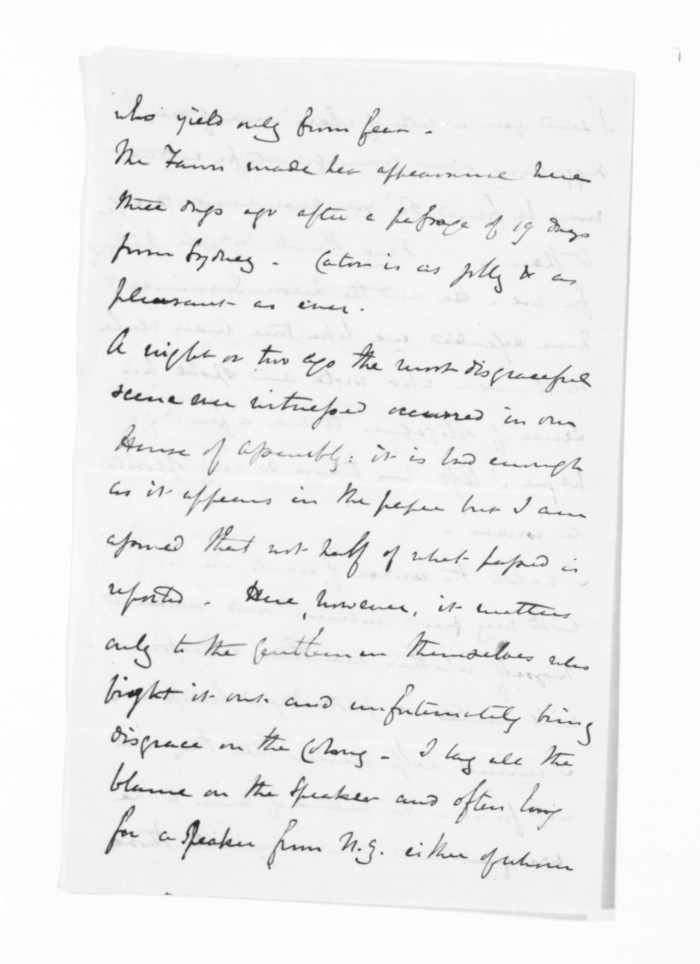 who yield only from fear -
The Fawn made her appearance here
three days ago after a passage of 19 days
from Sydney - Cator is as jolly & as
pleasant as ever.
A night or two ago the most disgraceful
scene ever witnessed occurred in our
House of Assembly: it is bad enough
as it appears in the paper but I am
assured that not half of what passed is
reported - Here, however, it matters
only to the Gentlemen themselves who
fight it out and unfortunately bring
disgrace on the Colony - I lay all the
blame on the Speaker and often long
for a Speaker from N.Z. either of whom